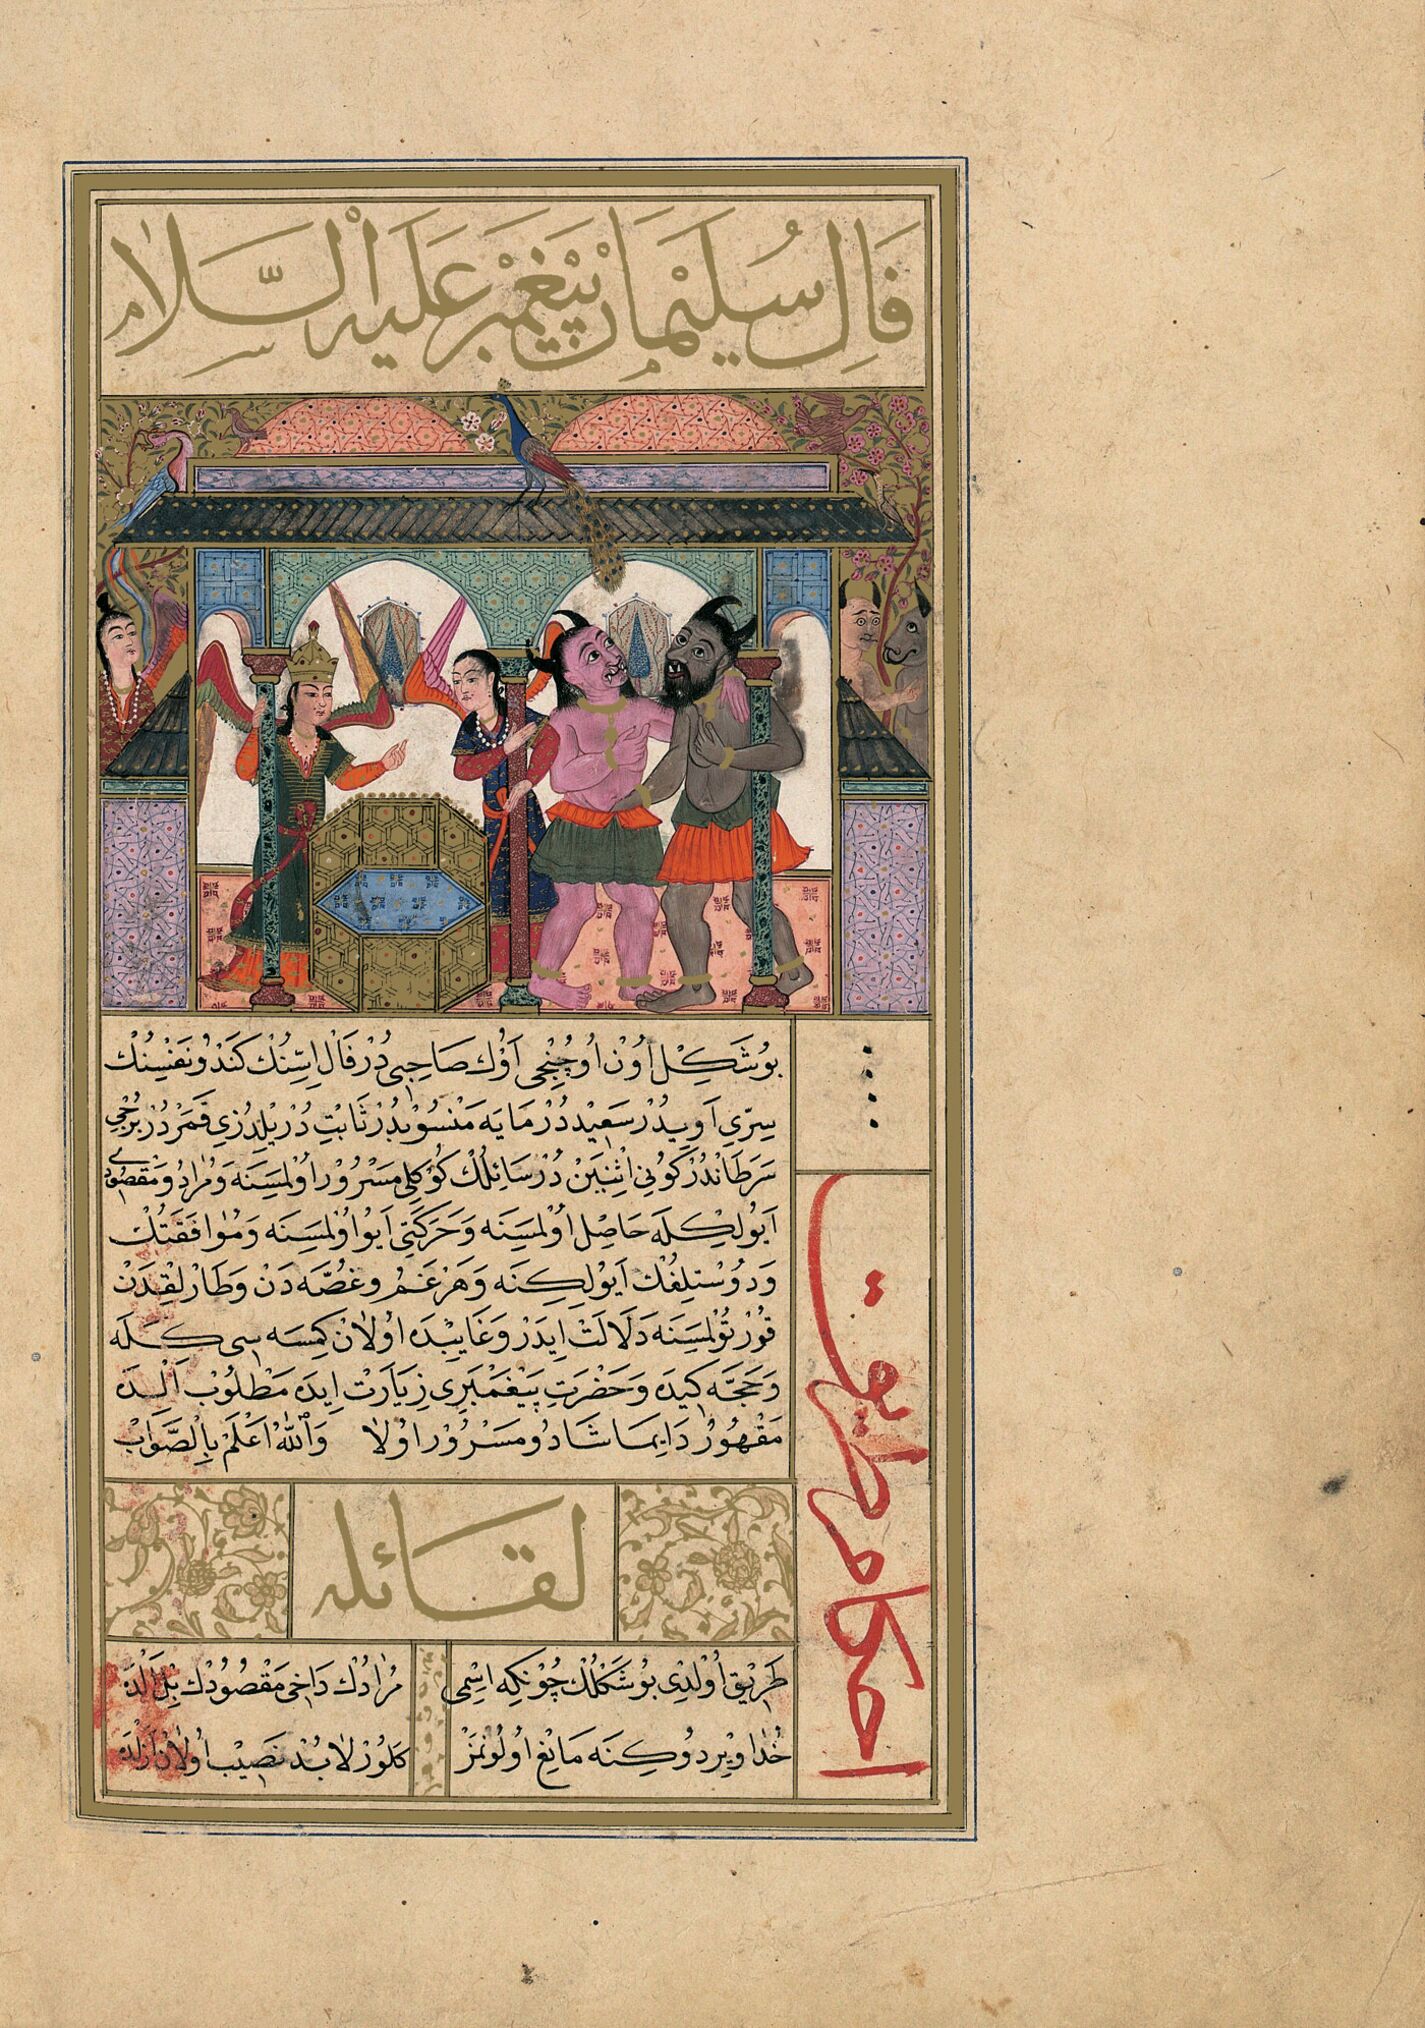 فَالِ سُلَيْمَانْ پَيْغَمْبَرْ عَلَيْهِ السَّلَامْ
بُو شَكِلْ اُونْ اُوچُنْجِى اَوُكْ صَاحِبِى دُرْ فَالْ اِسِّنُكْ كَنْدُو نَفْسِنُكْ
سِرِّي اَوِيدُرْ سَعِيْد دُرْ مَايَه مَنْسُوبْدُرْ ثَابِتْ دُرْ يِلْدُزِي قَمَرْ دُرْ بُرْجِي
سَرَطَانْدُرْ كُونِى اِثْنَيْنْ دُرْ سَائِلُكْ كُوكْلِى مَسْرُورْ اُولْمَسِنَه وَمُرَادُ وَمَقْصُودِى
اَيُولِكِلَه حَاصِلْ اُولْمَسِينَه وَحَرَكَتِى اَيُو اوُلْمَسِينَه وَمُوَافَقَتُكْ
وَدُوسْتلِغُكْ اَيُولِكِنَه وَهَرْ غَمْ وغُصَّه دَنْ وَطَارْلِقْدَنْ
قُورْتُوْلمَسِنَه دَلَالَتْ اِيدَرْ وَغَايِبْدَه اُولَانْ كِمْسَه سِى كَلَه
وَحَجَّه كِيدَه وَحَضْرَتِ پَيْغَمْبَرِى زِيَارَتْ اِيدَه مَطْلُوبْ اَلِنْدَه
مَقْهُورْ دَايِمَا شَاد وُ مَسْرُورْ اوُلَا وَاللهُ اَعْلَمْ بِالصَّوَابْ
احكام طريقت
لقائله
طَرِيقْ اُولْدِى بُو شَكْلُكْ چُونْكِه اسْمِى مُرَادُكْ دَاخِى مَقْصُودُكْ بِلْ اَلْدَه
خُدَا وِيْردُوكِنَه مَانِعْ اُولُونْمَزْ كَلُورْ لَا بُدْ نَصِيبْ اُولَانْ اَزَلْدَه